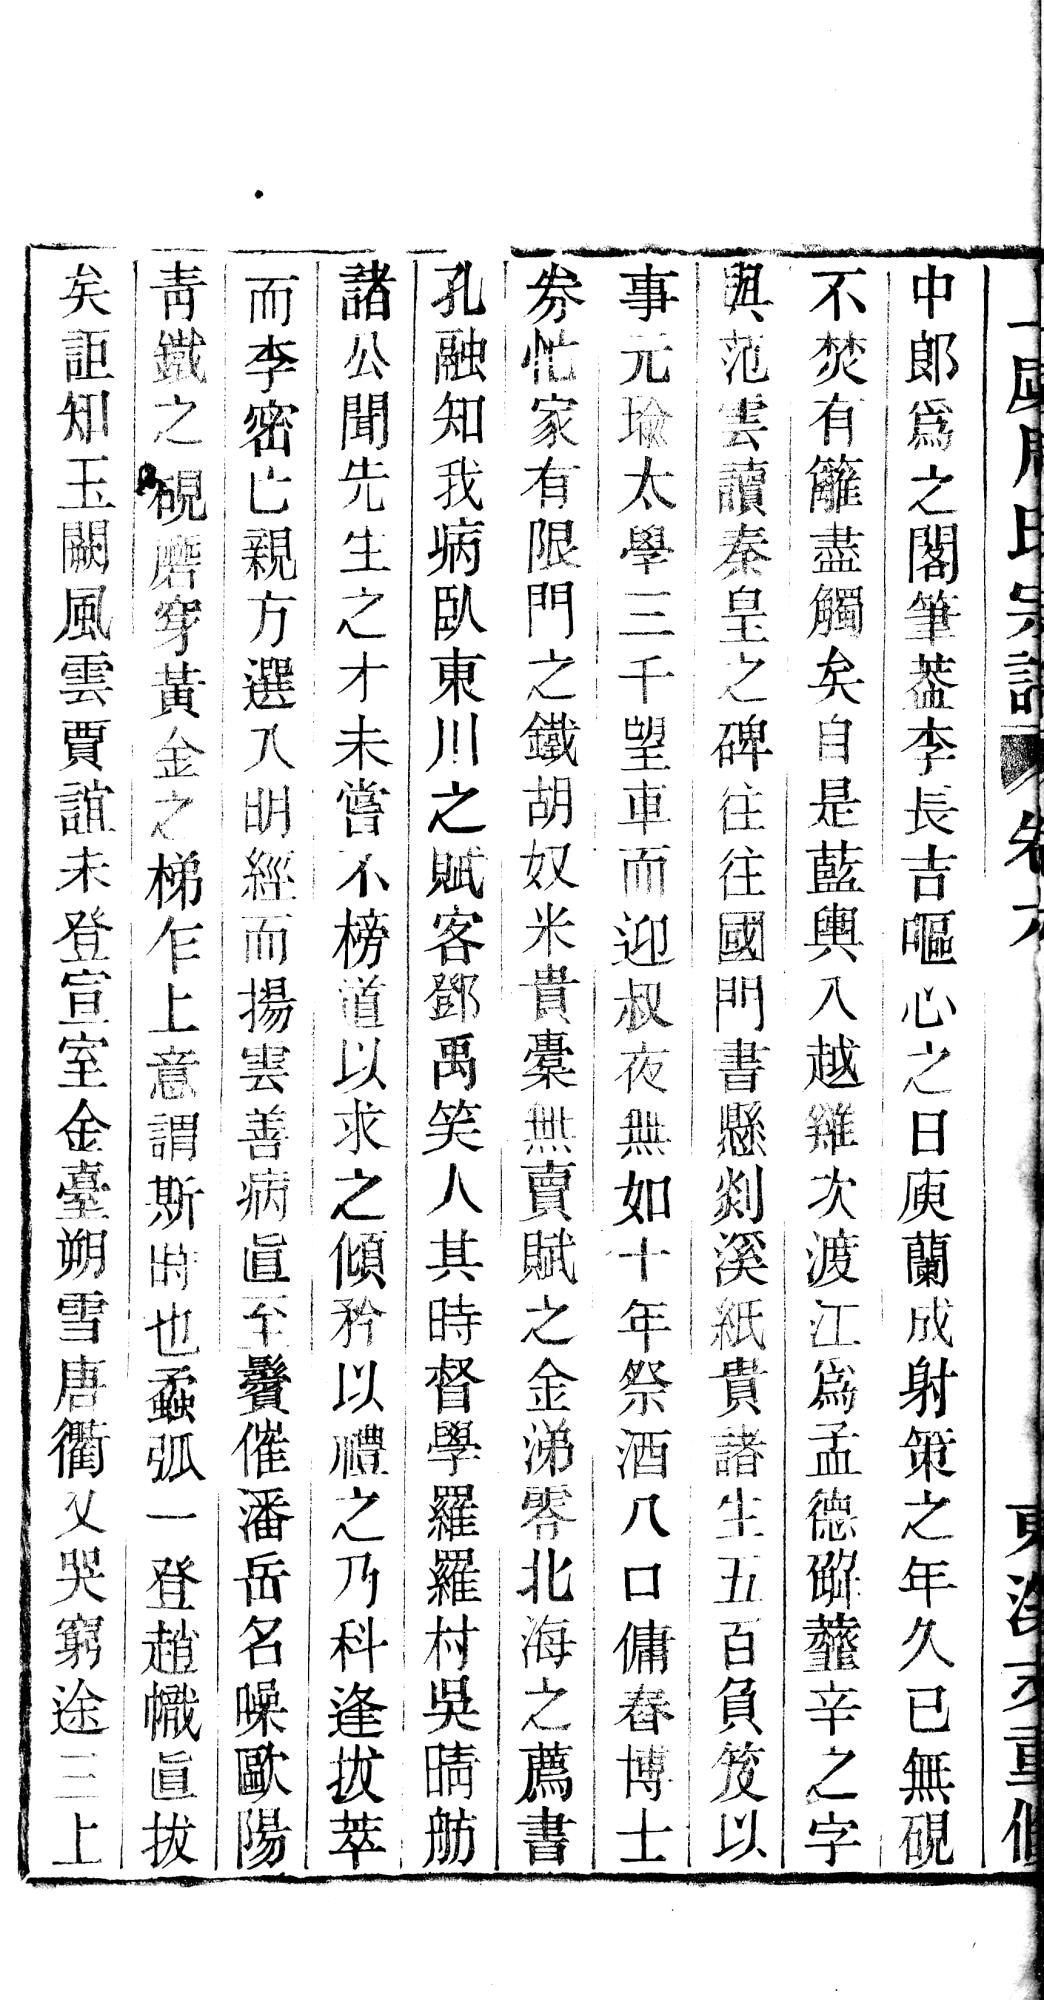 中郎爲之閣筆葢李長吉嘔心之日庾蘭成射策之年久已無硯
不焚有籬盡觸矣自是藍輿入越雞次渡江爲孟德辭虀辛之字
與范雲讀秦皇之碑往往國門書懸剡溪紙貴諸生五百負笈以
事元瑜太學三千望車而迎叔夜無如十年祭酒八口傭舂博士
券忙家有限門之鐵胡奴米貴橐無賣賦之金涕零北海之薦書
孔融知我病臥東川之賦客鄧禹笑人其時督學羅羅村吳晴舫
諸公聞先生之才未嘗不榜道以求之傾矜以禮之乃科逢拔萃
而李密亡親方選入明經而揚雲善病眞至鬢催潘岳名噪歐陽
靑鐵之硯磨穿黃金之梯乍上意謂斯時也蝥弧一登趙幟眞拔
矣詎知玉闕風雲賈誼未登宣室金臺朔雪唐衢又哭窮途三上
周氏宗譜 卷六